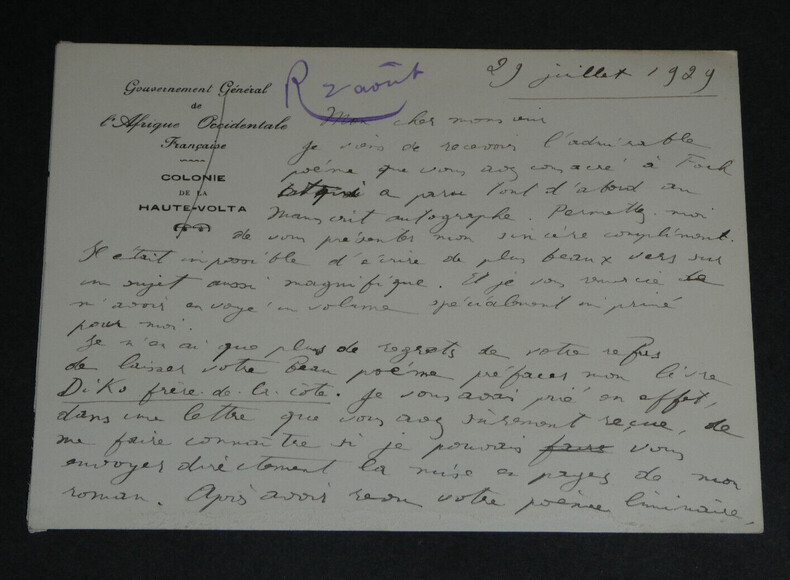 Gouvernement Général
de
l'Afrique Occidentale
Française
COLONIE
DE LA
HAUTE-VOLTA
R 2 août
29 juillet 1929
Mon cher monsieur
je viens de recevoir l'admirable
poème que vous avez consacré à Foch
et qui a paru tout d'abord au
Manuscrit autographe. Permettez-moi
de vous présenter mon sincère compliment.
Il était impossible d'écrire de plus beaux vers sur
un sujet aussi magnifique. Et je vous remercie de
m'avoir envoyé un volume spécialement imprimé
pour moi.
Je n'en ai que plus de regrets de votre refus
de laisser votre beau poème préfacer mon livre
Diko frère de la côte. Je vous avais prié en effet,
dans une lettre que vous avez sûrement reçue, de
me faire connaître si je pouvais faire vous
envoyer directement la mise en pages de mon
roman. Après avoir reçu votre poème liminaire,